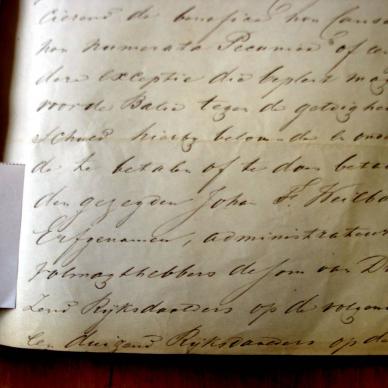 cierend de beneficien hen causa
non numerata Pecunia of
dere exceptie die
voor de Balie tegen de geldigheid
Schuld hierby belovende
de te betalen of te doen betal
den gezegden Johan F. Heilbo
Erfgenamen, administrateur
Volmagthebbers de Som van D
Zend Ryksdaalders op de volgen
Een duizend Ryksdaalders op de